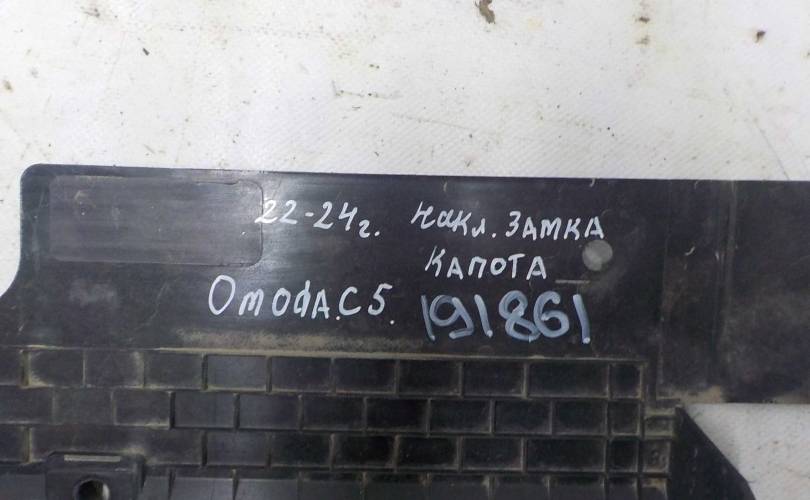 22-24г. Накл. ЗАМКА
КАПОТА
OmodA.C5. 191861